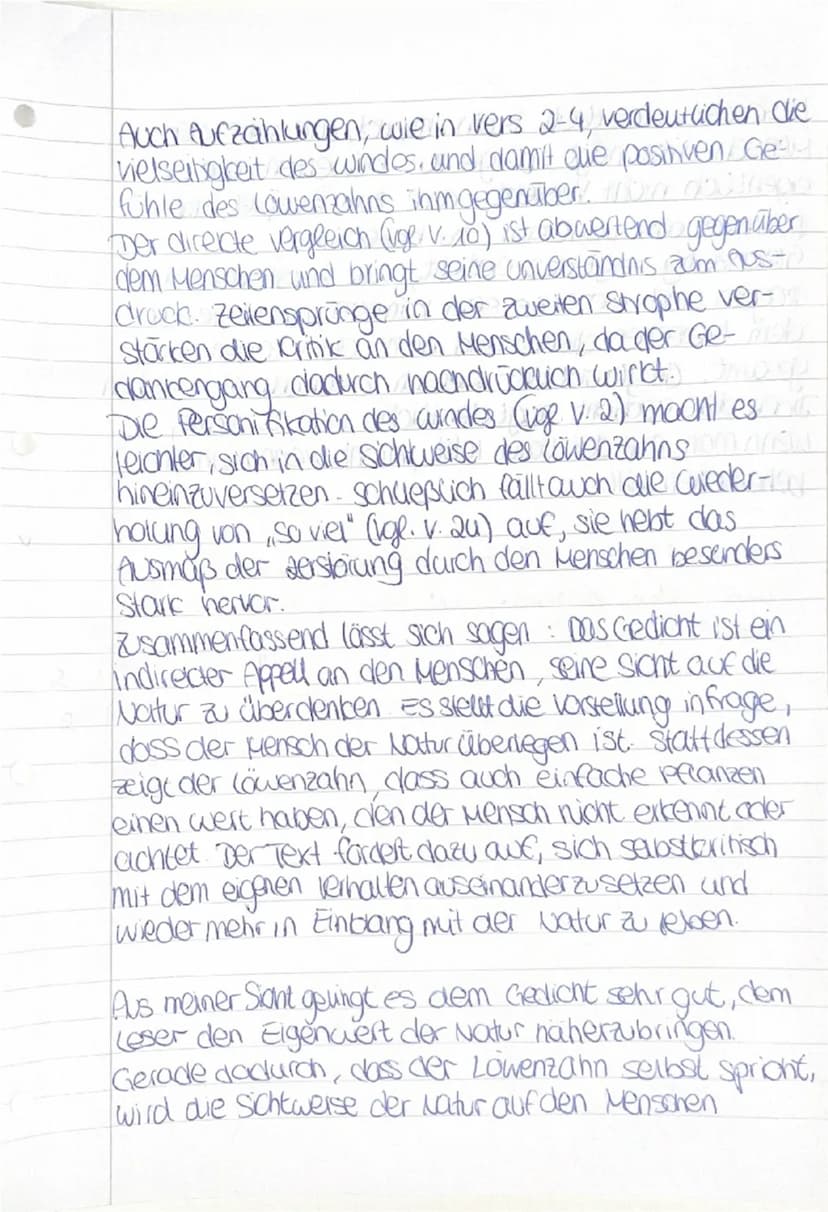 Auch Aufzählungen, wie in Vers 2-4, verdeutlichen die
Vielseitigkeit des Windes und damit die positiven Ge-
fühle des Löwenzahns ihm gegenüber.
Der direkte Vergleich (vgl. V. 10) ist abwertend gegenüber
dem Menschen und bringt seine Unverständnis zum Aus-
druck. Zeilensprünge in der zweiten Strophe ver-
stärken die Kritik an den Menschen, da der Ge-
dankengang dadurch nachdrücklich wirkt.
Die Personifikation des Windes (vgl. V. 2) macht es
leichter, sich in die Sichtweise des Löwenzahns
hineinzuversetzen. Schließlich fällt auch die Wieder-
holung von „so viel" (vgl. V. 24) auf, sie hebt das
Ausmaß der Zerstörung durch den Menschen besonders
stark hervor.
Zusammenfassend lässt sich sagen: Das Gedicht ist ein
indirekter Appell an den Menschen, seine Sicht auf die
Natur zu überdenken. Es stellt die Vorstellung infrage,
dass der Mensch der Natur überlegen ist. Stattdessen
zeigt der Löwenzahn, dass auch einfache Pflanzen
einen Wert haben, den der Mensch nicht erkennt oder
achtet. Der Text fordert dazu auf, sich selbstkritisch
mit dem eigenen Verhalten auseinanderzusetzen und
wieder mehr in Einklang mit der Natur zu leben.
Aus meiner Sicht gelingt es dem Gedicht sehr gut, dem
Leser den Eigenwert der Natur näherzubringen.
Gerade dadurch, dass der Löwenzahn selbst spricht,
wird die Sichtweise der Natur auf den Menschen